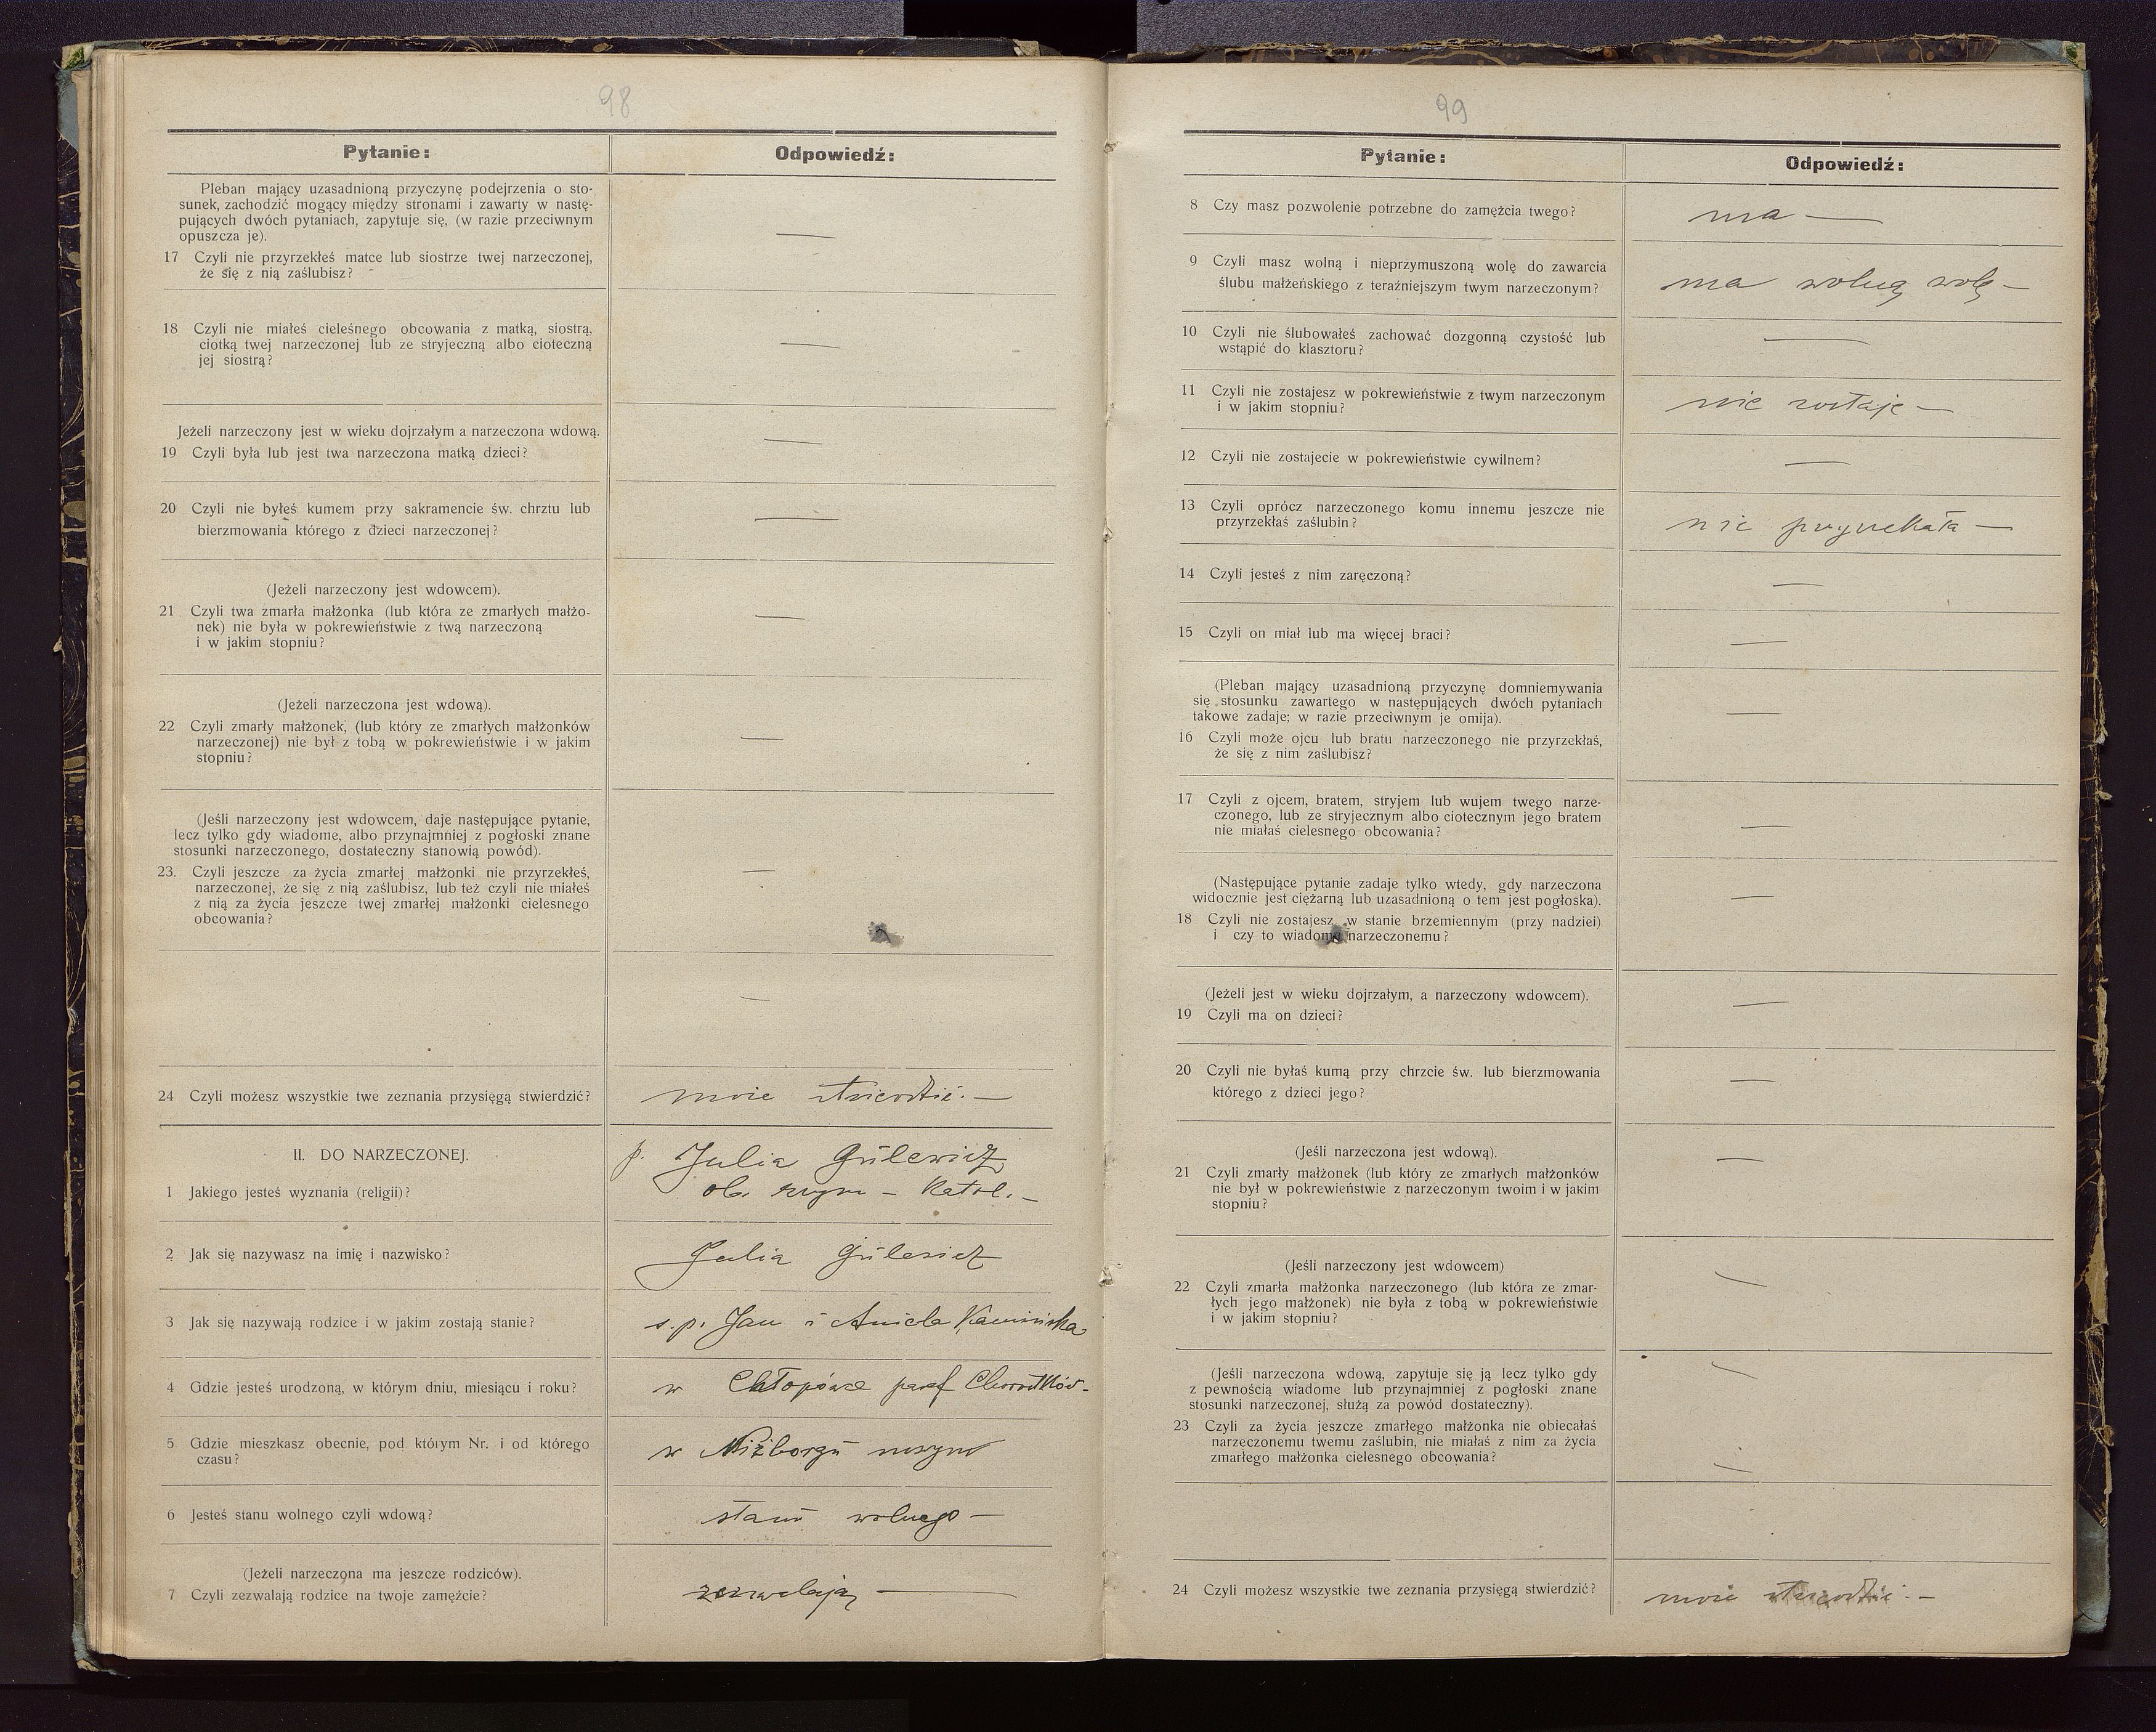 98
Pytanie:
Odpowiedź:
Pleban mający uzasadnioną przyczynę podejrzenia o sto-
sunek, zachodzić mogący między stronami i zawarty w nastę-
pujących dwóch pytaniach, zapytuje się, (w razie przeciwnym
opuszcza je).
—
17 Czyli nie przyrzekłeś matce lub siostrze twej narzeczonej,
że się z nią zaślubisz?
18 Czyli nie miałeś cieleśnego obcowania z matką, siostrą,
ciotką twej narzeczonej lub ze stryjeczną albo cioteczną
jej siostrą?
—
Jeżeli narzeczony jest w wieku dojrzałym a narzeczona wdową.
19 Czyli była lub jest twa narzeczona matką dzieci?
—
20 Czyli nie byłeś kumem przy sakramencie św. chrztu lub
bierzmowania którego z dzieci narzeczonej?
—
(Jeżeli narzeczony jest wdowcem).
21 Czyli twa zmarła małżonka (lub która ze zmarłych małżo-
nek) nie była w pokrewieństwie z twą narzeczoną
i w jakim stopniu?
—
(Jeżeli narzeczona jest wdową).
22 Czyli zmarły małżonek, (lub który ze zmarłych małżonków
narzeczonej) nie był z tobą w pokrewieństwie i w jakim
stopniu?
—
(Jeśli narzeczony jest wdowcem, daje następujące pytanie,
lecz tylko gdy wiadome, albo przynajmniej z pogłoski znane
stosunki narzeczonego, dostateczny stanowią powód).
23. Czyli jeszcze za życia zmarłej małżonki nie przyrzekłeś,
narzeczonej, że się z nią zaślubisz, lub też czyli nie miałeś
z nią za życia jeszcze twej zmarłej małżonki cielesnego
obcowania?
—
—
24 Czyli możesz wszystkie twe zeznania przysięgą stwierdzić?
może stwierdzić. —
II. DO NARZECZONEJ.
p. Julia Gulewicz
1 Jakiego jesteś wyznania (religii)?
ob. rzym – katol. —
2 Jak się nazywasz na imię i nazwisko?
Julia Gulewicz
3 Jak się nazywają rodzice i w jakim zostają stanie?
s.p. Jan i Aniela Kamińska
4 Gdzie jesteś urodzoną, w którym dniu, miesiącu i roku?
w Chłopówce paraf Chorostków-
5 Gdzie mieszkasz obecnie, pod którym Nr. i od którego
czasu?
w Niżborgu nowym
6 Jesteś stanu wolnego czyli wdową?
stanu wolnego —
(Jeżeli narzeczona ma jeszcze rodziców).
7 Czyli zezwalają rodzice na twoje zamęźcie?
zezwalają —
99
Pytanie:
Odpowiedź:
8 Czy masz pozwolenie potrzebne do zamężcia twego?
ma —
9 Czyli masz wolną i nieprzymuszoną wolę do zawarcia
ślubu małżeńskiego z teraźniejszym twym narzeczonym?
ma wolną wolę —
10 Czyli nie ślubowałeś zachować dozgonną czystość lub
wstąpić do klasztoru?
—
11 Czyli nie zostajesz w pokrewieństwie z twym narzeczonym
i w jakim stopniu?
nie zostaje —
12 Czyli nie zostajecie w pokrewieństwie cywilnem?
—
13 Czyli oprócz narzeczonego komu innemu jeszcze nie
przyrzekłaś zaślubin?
nie przyrzekała —
14 Czyli jesteś z nim zaręczoną?
—
15 Czyli on miał lub ma więcej braci?
—
(Pleban mający uzasadnioną przyczynę domniemywania
się stosunku zawartego w następujących dwóch pytaniach
takowe zadaje; w razie przeciwnym je omija).
—
16 Czyli może ojcu lub bratu narzeczonego nie przyrzekłaś,
że się z nim zaślubisz?
17 Czyli z ojcem, bratem, stryjem lub wujem twego narze-
czonego, lub ze stryjecznym albo ciotecznym jego bratem
nie miałaś cielesnego obcowania?
—
(Następujące pytanie zadaje tylko wtedy, gdy narzeczona
widocznie jest ciężarną lub uzasadnioną o tem jest pogłoska).
—
18 Czyli nie zostajesz w stanie brzemiennym (przy nadziei)
i czy to wiadomo narzeczonemu?
(Jeżeli jest w wieku dojrzałym, a narzeczony wdowcem).
19 Czyli ma on dzieci?
—
20 Czyli nie byłaś kumą przy chrzcie św. lub bierzmowania
którego z dzieci jego?
—
(Jeśli narzeczona jest wdową).
—
21 Czyli zmarły małżonek (lub który ze zmarłych małżonków
nie był w pokrewieństwie z narzeczonym twoim i w jakim
stopniu?
(Jeśli narzeczony jest wdowcem)
22 Czyli zmarła małżonka narzeczonego (lub która ze zmar-
łych jego małżonek) nie była z tobą w pokrewieństwie
i w jakim stopniu?
—
(Jeśli narzeczona wdową, zapytuje się ją lecz tylko gdy
z pewnością wiadome lub przynajmniej z pogłoski znane
stosunki narzeczonej, służą za powód dostateczny).
—
23 Czyli za życia jeszcze zmarłego małżonka nie obiecałaś
narzeczonemu twemu zaślubin, nie miałaś z nim za życia
zmarłego małżonka cielesnego obcowania?
—
24 Czyli możesz wszystkie twe zeznania przysięgą stwierdzić?
może stwierdzić. —